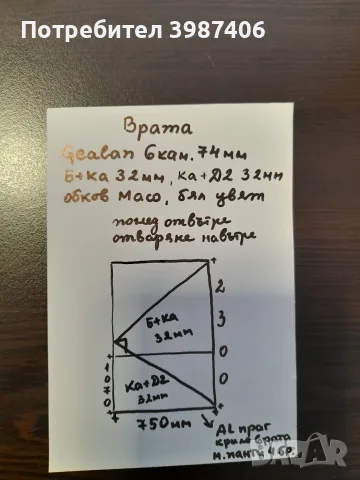 Потребител 3987406
Врата
Gealan 6 кам. 74мм
Б+Ка 32мм, Ка+D2 32мм
обков Масо, бял цвят
поглед отвътре
отваряне навътре
Б+Ка
32мм
Ка+D2
32мм
2300
1070
750мм
AL праг
крило врата
м. панти 4бр.
BAZAR